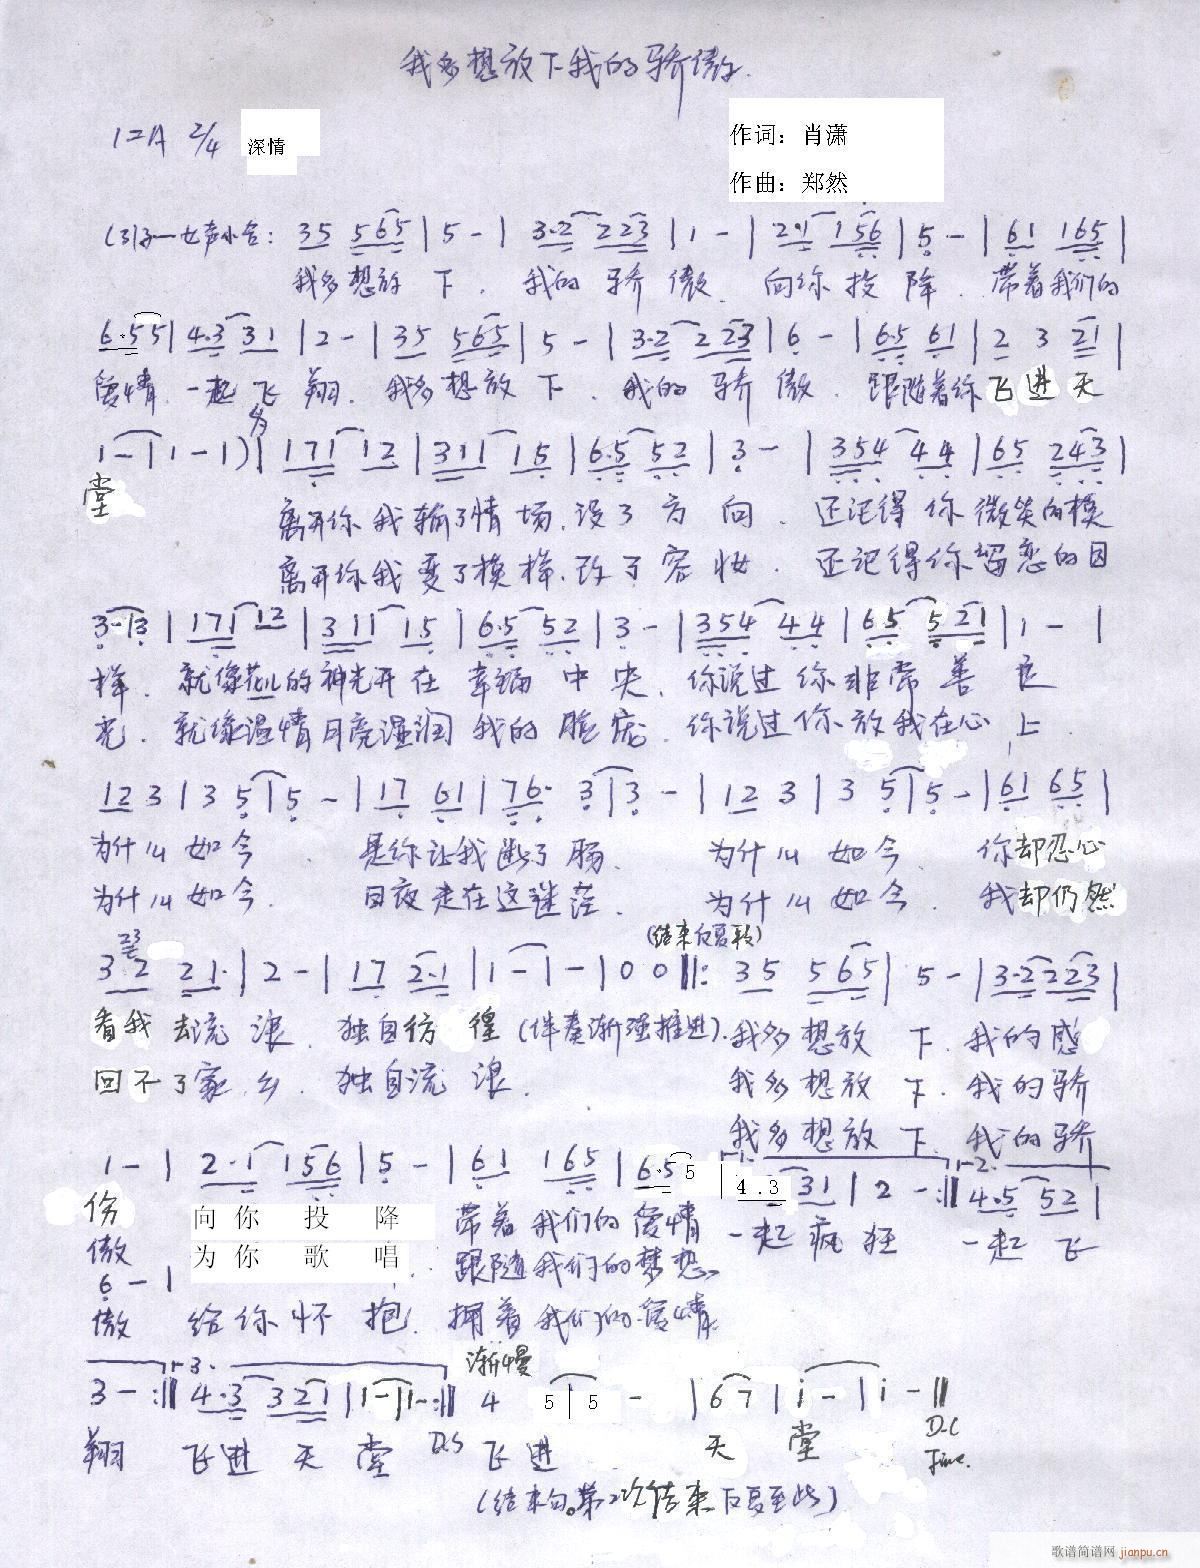 我多想放下我的骄傲
1=A 2/4 深情
作词：肖潇
作曲：郑然
(引子—女声小合： 35 565 | 5 - | 3·2 223 | 1 - | 2·1 156 | 5 - | 61 165 |
我多想放 下. 我的 骄 傲. 向你 投 降. 带着我们的
6·55 | 4·3 31 | 2 - | 35 565 | 5 - | 3·2 223 | 6 - | 6·5 61 | 2 3 21 |
爱情. 一起飞 翔. 我多想放 下. 我的 骄 傲. 跟随着你 飞进天
1 - | 1 - 1) | 171 12 | 311 15 | 6·5 52 | 3 - | 354 44 | 65 243 |
堂 离开你我输了情场.没了方 向. 还记得你微笑的模
离开你我变了模样.改了容 妆. 还记得你留恋的目
3 - 3 | 171 12 | 311 15 | 6·5 52 | 3 - | 354 44 | 65 521 | 1 - |
样. 就像花儿的神光开在 幸福 中 央. 你说过你非常善 良
光. 就像温情月亮湿润 我的 脸庞. 你说过你放我在心 上
12 3 | 3 5 | 5 - | 17 61 | 76· 3 | 3 - | 12 3 | 3 5 | 5 - | 61 65 |
为什么如今 . 是你让我断了肠. 为什么 如今. 你却忍心
为什么如今. 日夜走在这迷茫. 为什么 如今. 我却仍然
23
(结束反复)
3 2 21· | 2 - | 17 2·1 | 1 - | - | 0 0 ‖: 35 565 | 5 - | 3·2 223 |
看我 去流 浪. 独自彷 徨 (伴奏渐强推进). 我多想放 下. 我的感
回不了家 乡. 独自流 浪. 我多想放 下. 我的骄
我多想放 下. 我的骄
1 - | 2·1 156 | 5 - | 61 165 | 6·5 5 | 4.3 31 | 2 - :‖ 2. 4·5 52 |
伤 向 你 投 降 带着我们的爱情 一起疯狂 一起 飞
傲 为 你 歌 唱 跟随我们的梦想
6 - |
傲 给你怀 抱. 拥着我们的爱情
渐慢
3 - :‖ 3. 4·3 321 | 1 - | 1 - :‖ 4 5 | 5 - | 6 7 | i - | i - ‖
翔 飞进 天 堂 D.S 飞 进 天 堂 D.C
Fine.
(结束句。第2次结束反复至此)
歌谱简谱网 jianpu.cn